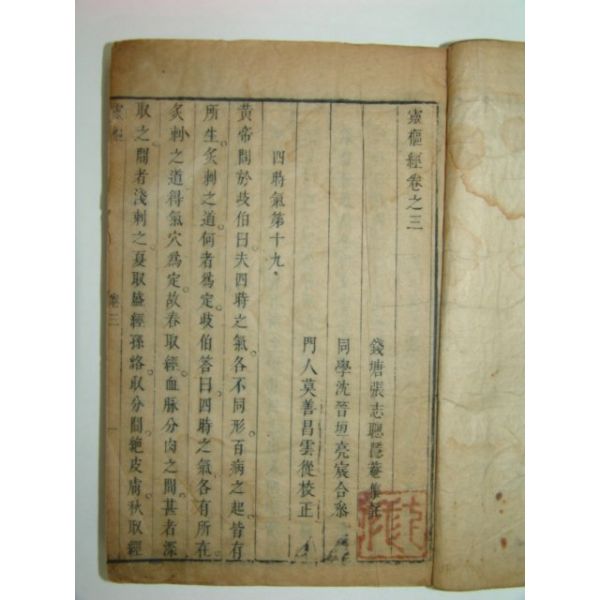 靈樞經卷之三
錢塘張志聰隱菴集註
同學沈晉垣亮宸合叅
門人莫善昌雲從校正
四時氣第十九
黃帝問於歧伯曰夫四時之氣各不同形百病之起皆有
所生炙刺之道何者爲定歧伯答曰四時之氣各有所在
炙刺之道得氣穴爲定故春取經血脉分肉之間甚者深
取之間者淺刺之夏取盛經孫絡取分間絕皮膚秋取經
靈樞 卷三